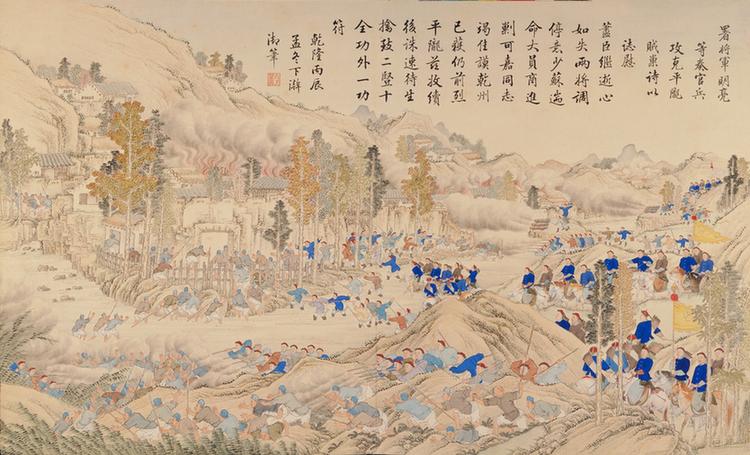 署將軍明亮
等奏官兵
攻克平隴
賊巢詩以
誌慰
藎臣繼逝心
如失兩將調
停少蘇遄
命大員商進
剿可嘉同志
竭佳謨乾州
已仍前烈
平隴茲收續
後誅速待生
擒致二豎十
全功外一功
符
乾隆丙辰
孟冬下澣
御筆